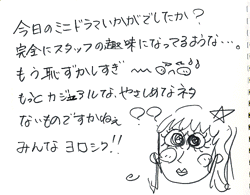 今日のミニドラマいかがでしたか?
完全にスタッフの趣味になってるような…。
もう恥ずかしすぎ〜〜
もっとカジュアルな、やさしめなネタ
ないものですかねぇ
みんなヨロシク!!